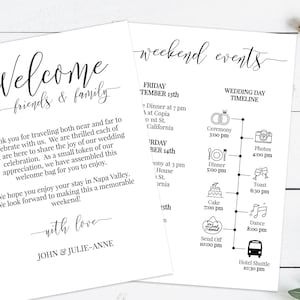 Welcome
friends & family
ank you for traveling both near and far to
ebrate with us. We are thrilled each of
are here to share the joy of our wedding
celebration. As a small token of our
appreciation, we have assembled this
welcome bag for you to enjoy.
We hope you enjoy your stay in Napa Valley.
We look forward to making this a memorable
weekend!
with love
JOHN & JULIE-ANNE
weekend events
FRIDAY
TEMBER 13th
Dinner at 7 pm
At Copia
nd St,
California
TURDAY
TEMBER 14th
ony at 3 pm
House
d St.
California
WEDDING DAY
TIMELINE
Ceremony
3:00 pm
Photos
4:00 pm
Dinner
5:00 pm
Toast
6:30 pm
Cake
7:00 pm
Dance
8:00 pm
Send Off
10:00 pm
Hotel Shuttle
10:30 pm